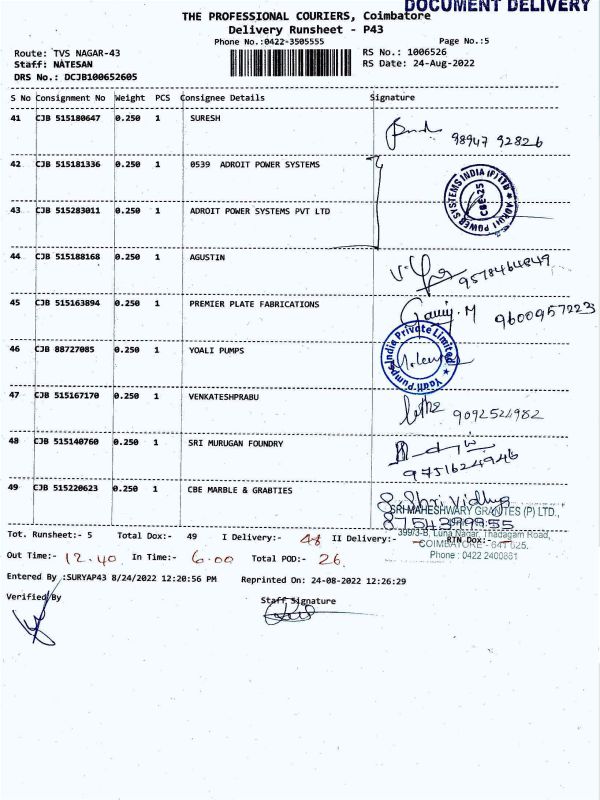 DOCUMENT DELIVERY
THE PROFESSIONAL COURIERS, Coimbatore
Delivery Runsheet - P43
Phone No.:0422-3505555
Page No.:5
Route: TVS NAGAR-43
RS No.: 1006526
Staff: NATESAN
RS Date: 24-Aug-2022
DRS No.: DCJB100652605
S No Consignment No Weight PCS Consignee Details Signature
41 CJB 515180647 0.250 1 SURESH
98947 92826
42 CJB 515181336 0.250 1 0539 ADROIT POWER SYSTEMS
43 CJB 515283011 0.250 1 ADROIT POWER SYSTEMS PVT LTD
ADROIT POWER SYSTEMS INDIA (P) LTD
CBE-25
44 CJB 515188168 0.250 1 AGUSTIN
9578464849
45 CJB 515163894 0.250 1 PREMIER PLATE FABRICATIONS
9600957223
46 CJB 88727085 0.250 1 YOALI PUMPS
Yaali Pumps India Private Limited
47 CJB 515167170 0.250 1 VENKATESHPRABU
9092524982
48 CJB 515140760 0.250 1 SRI MURUGAN FOUNDRY
9751624946
49 CJB 515220623 0.250 1 CBE MARBLE & GRABTIES
S. Shri Vidhya
SRI MAHESHWARY GRANITES (P) LTD.,
8754399955
399/3-B, Luna Nagar, Thadagam Road,
COIMBATORE - 641 025.
Phone : 0422 2400881
Tot. Runsheet:- 5 Total Dox:- 49 I Delivery:- 48 II Delivery:- RTN Dox:-
Out Time:- 12.40 In Time:- 6.00 Total POD:- 26
Entered By :SURYAP43 8/24/2022 12:20:56 PM Reprinted On: 24-08-2022 12:26:29
Verified By
Staff Signature